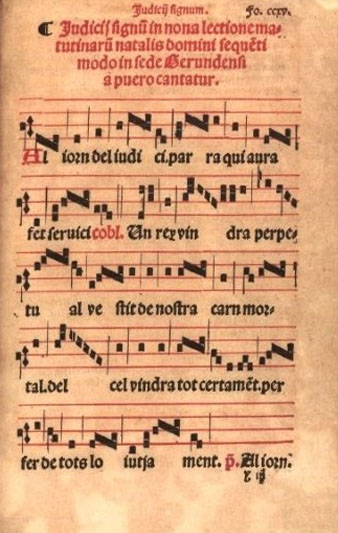 Judicij signum. Fo. ccxv.
¶ Judicij signũ in nona lectione ma⸗
tutinarũ natalis domini sequẽti
modo in sede Gerundensi
a puero cantatur.
Al iorn del iudi ci. par ra qui aura
fet seruici cobl. Un rey vin dra perpe⸗
tu al ve stit de nostra carn mor⸗
tal. del cel vindra tot certamẽt. per
fer de tots lo iutja ment. p̃. Al iorn.